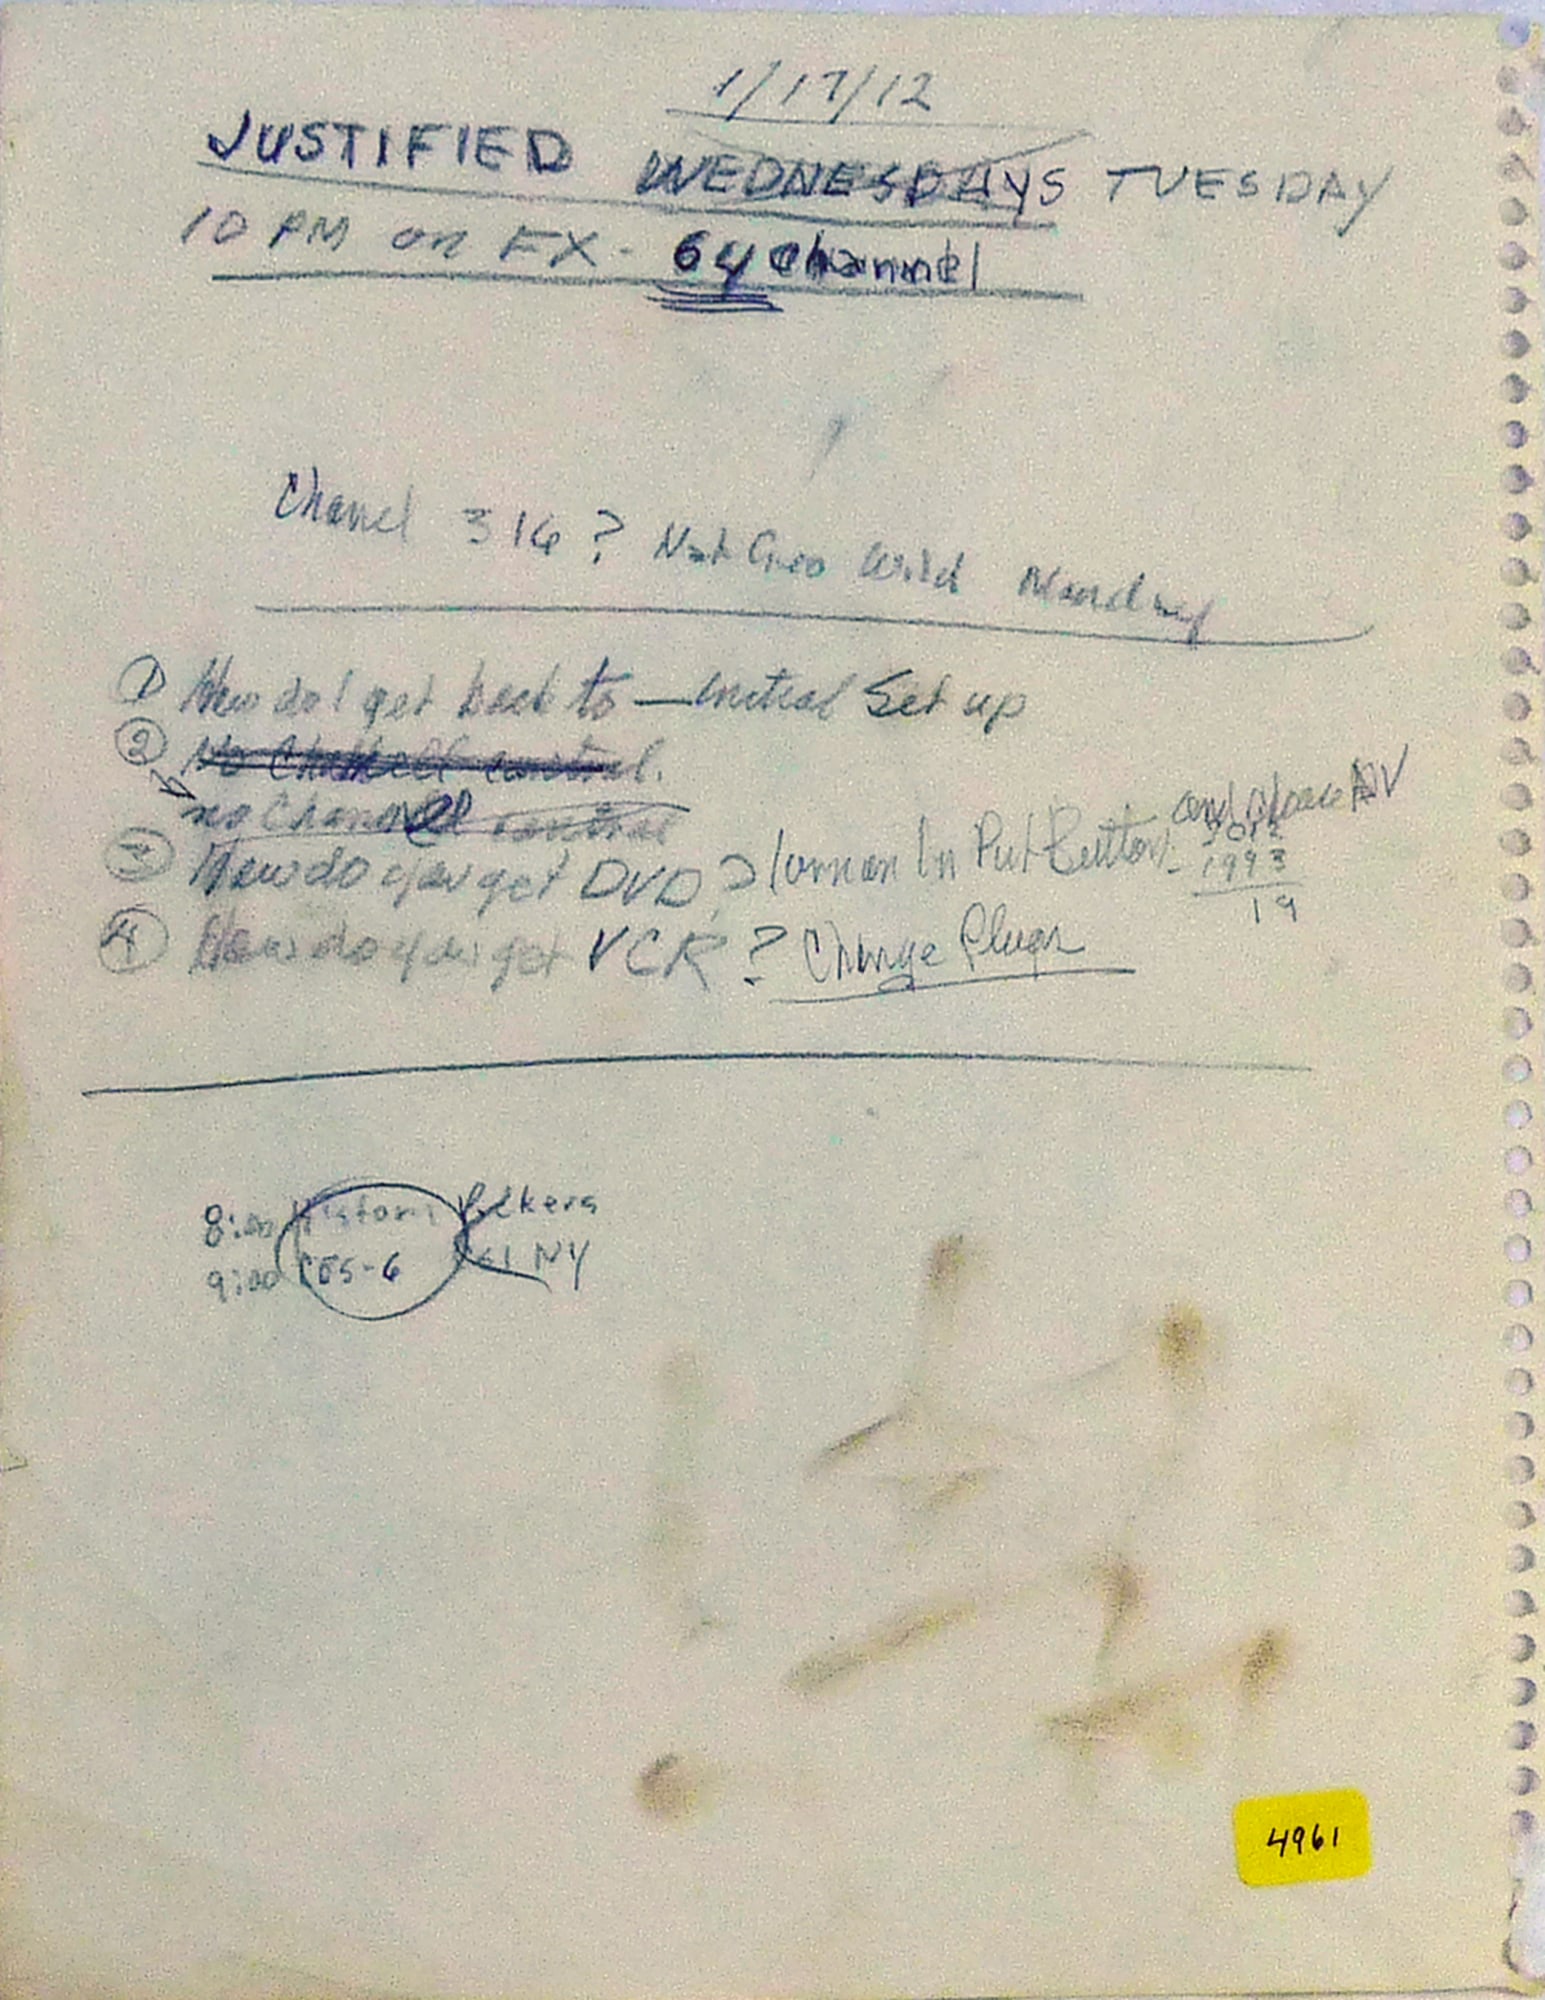 1/17/12
JUSTIFIED WEDNESDAYS TUESDAY
10 PM on FX - 64 channel
Chanel 316? Nat Geo Wild Monday
① How do I get back to — initial Set up
② No Channel control.
no Channel control
③ How do you get DVD? In Put Button and choose AV
2012
1993
19
④ How do you get VCR? Change Plugs
8:00 History Pickers
9:00 CBS-6 NY
4961